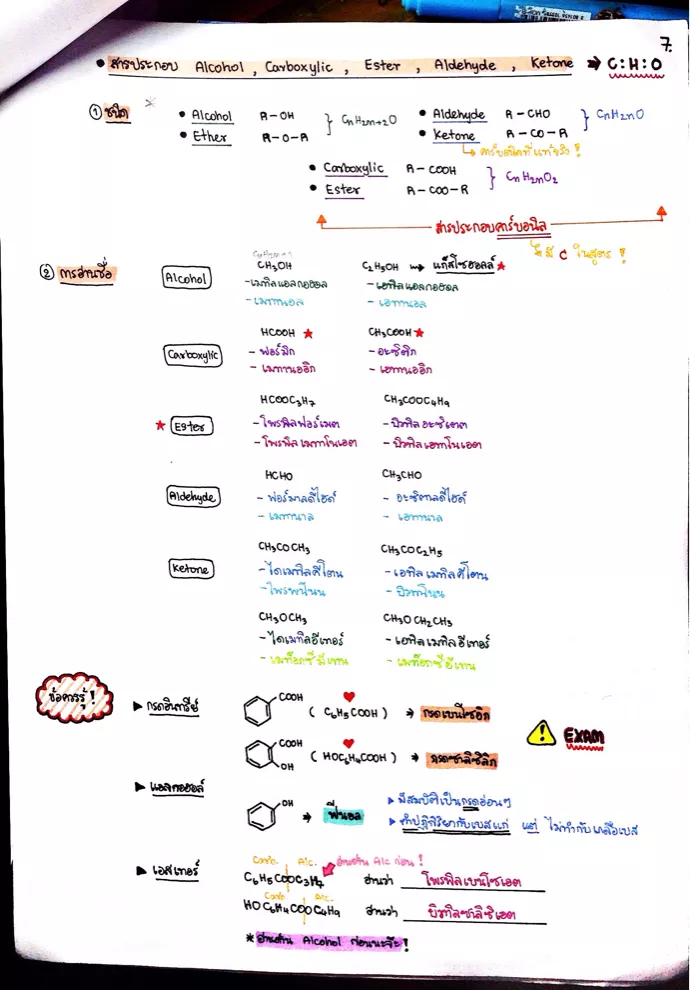 7.
• สารประกอบ Alcohol , Carboxylic , Ester , Aldehyde , Ketone → C:H:O
① ชนิด
• Alcohol R-OH } CnH2n+2O • Aldehyde R-CHO } CnH2nO
• Ether R-O-R • Ketone R-CO-R
↳ คาร์บอนิลที่แท้จริง !
• Carboxylic R-COOH } CnH2nO2
• Ester R-COO-R
สารประกอบคาร์บอนิล
ไม่มี C ในสูตร !
② การอ่านชื่อ
Alcohol CH3OH C2H5OH → แก๊สโซฮอลล์ ★
-เมทิลแอลกอฮอล -เอทิลแอลกอฮอล
-เมทานอล -เอทานอล
Carboxylic HCOOH ★ CH3COOH ★
-ฟอร์มิก -อะซิติก
-เมทานออิก -เอทานออิก
★ Ester HCOOC3H7 CH3COOC4H9
-โพรพิลฟอร์เมต -บิวทิลอะซิเตต
-โพรพิลเมทาโนเอต -บิวทิลเอทาโนเอต
Aldehyde HCHO CH3CHO
-ฟอร์มาลดีไฮด์ -อะซิตาลดีไฮด์
-เมทานาล -เอทานาล
Ketone CH3COCH3 CH3COC2H5
-ไดเมทิลคีโตน -เอทิลเมทิลคีโตน
-โพรพาโนน -บิวทาโนน
CH3OCH3 CH3OCH2CH3
-ไดเมทิลอีเทอร์ -เอทิลเมทิลอีเทอร์
-เมท็อกซีมีเทน -เมท็อกซีอีเทน
ข้อควรรู้ !
▶ กรดอินทรีย์ COOH (C6H5COOH) → กรดเบนโซอิก
! EXAM
COOH OH (HOC6H4COOH) → กรดซาลิซิลิก
▶ แอลกอฮอล์ OH → ฟีนอล
▶ มีสมบัติเป็นกรดอ่อนๆ
▶ ทำปฏิกิริยากับเบสแก่ แต่ ไม่ทำกับเกลือเบส
▶ เอสเทอร์ Carb. Alc. อ่านด้าน Alc ก่อน !
C6H5COOC3H7 อ่านว่า โพรพิลเบนโซเอต
Carb. Alc.
HOC6H4COOC4H9 อ่านว่า บิวทิลซาลิซิเลต
* อ่านด้าน Alcohol ก่อนนะจ๊ะ !